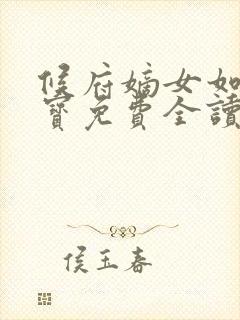 候府嫡女如
寶免費全讀
侯玉春